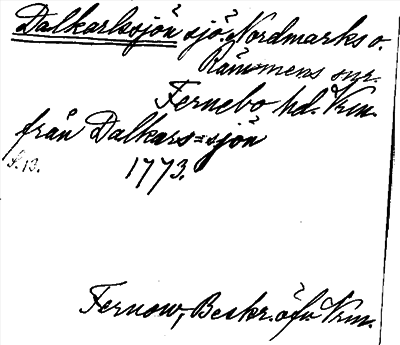 Dalkarlssjön sjö i Nordmarks o.
Rämmens snr.
Fernebo hd. Vrm.
från Dalkars=sjön
S. 13. 1773.
Fernow, Beskr. öfv Vrm.